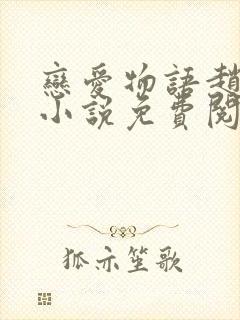 戀愛物語趙
小說免費閱
狐亦笙歌